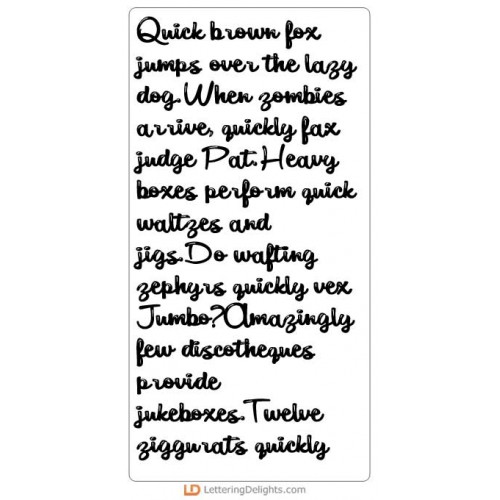 Quick brown fox
jumps over the lazy
dog.When zombies
arrive, quickly fax
judge Pat.Heavy
boxes perform quick
waltzes and
jigs.Do wafting
zephyrs quickly vex
Jumbo?Amazingly
few discotheques
provide
jukeboxes.Twelve
ziggurats quickly
LD LetteringDelights.com